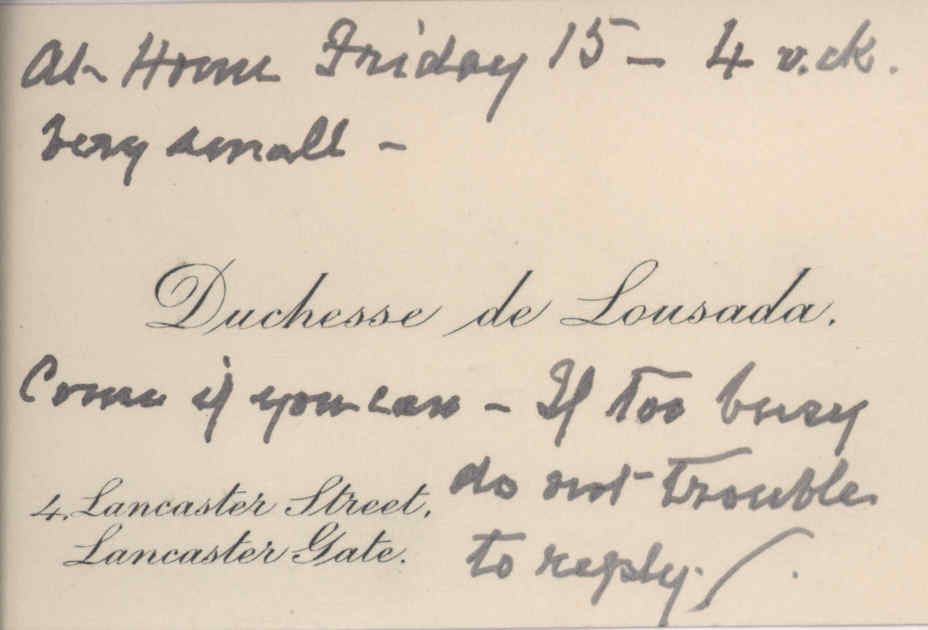 At Home Friday 15 – 4 o.ck.
Very small –
Duchesse de Lousada.
Come if you can – If too busy
do not trouble
4, Lancaster Street,
Lancaster Gate.
to reply.